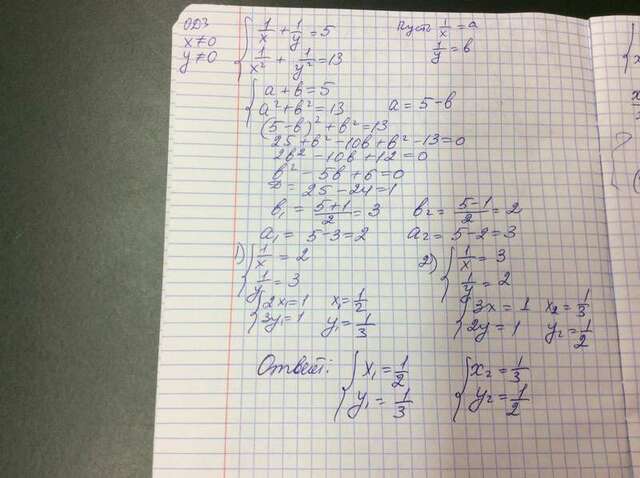 ОДЗ
x≠0
y≠0
{ 1/x + 1/y = 5
1/x² + 1/y² = 13
Пусть 1/x = a
1/y = b
{ a + b = 5
a² + b² = 13 a = 5 - b
(5 - b)² + b² = 13
25 + b² - 10b + b² - 13 = 0
2b² - 10b + 12 = 0
b² - 5b + 6 = 0
D = 25 - 24 = 1
b₁ = (5+1)/2 = 3 b₂ = (5-1)/2 = 2
a₁ = 5 - 3 = 2 a₂ = 5 - 2 = 3
1) { 1/x = 2
1/y = 3
{ 2x₁ = 1 x₁ = 1/2
3y₁ = 1 y₁ = 1/3
2) { 1/x = 3
1/y = 2
{ 3x = 1 x₂ = 1/3
2y = 1 y₂ = 1/2
Ответ: { x₁ = 1/2 { x₂ = 1/3
y₁ = 1/3 y₂ = 1/2